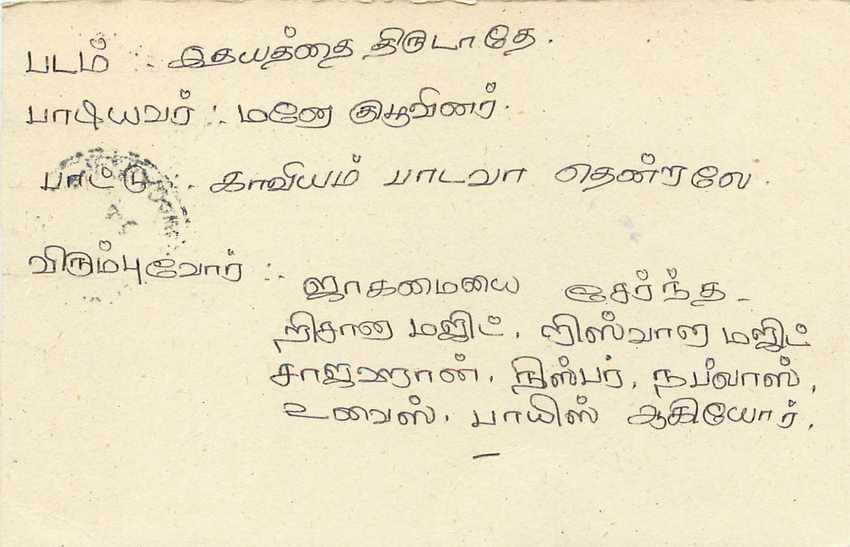 படம் : இதயத்தை திருடாதே.
பாடியவர் : மனோ குழுவினர்.
பாட்டு : காவியம் பாடவா தென்றலே.
விரும்புவோர் :
ஜாகமையை சேர்ந்த
றிசானா மஜிட், றிஸ்வான மஜிட்
சாஜஹான், நிஸ்பர், நப்லாஸ்,
உவைஸ், பாயிஸ் ஆகியோர்.